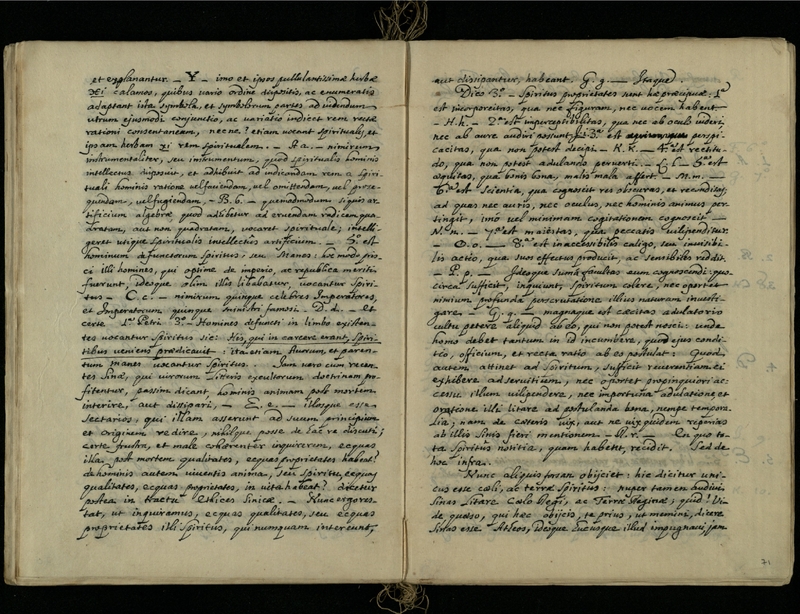 et explanantur. _ Y _ imo et ipsos pullulantissimæ herbæ
Xi calamos, quibus vario ordine dispositis, ac enumeratis
adaptant ista symbola, et symbolorum partes ad videndum
utrum ejusmodi conjunctio, ac variatio indicet rem rectæ
rationi consentaneam, necne? etiam vocant spirituales, et
ipsam herbam xi rem spiritualem. _ A a. _ nimirum
instrumentaliter, seu instrumentum, quod spiritualis hominis
intellectus disposuit, et adhibuit ad indicandam rem a spiri-
tuali hominis ratione vel faciendam, vel omittendam, vel prose-
quendam, vel fugiendam. _ B. b. _ quemadmodum siquis ar-
tificium algebræ quod adhibetur ad eruendam radicem qua-
dratam, aut non quadratam, vocaret spirituale; intelli-
geret utique spiritualis intellectus artificium. _ 5.º est
hominum defunctorum Spiritus; seu Manes: hoc modo pris-
ci illi homines, qui optime de imperio, ac republica meriti
fuerunt, ideoque olim illis libabatur, vocantur Spiri-
tus _ C. c. _ nimirum quinque celebres Imperatores,
et Imperatorum quinque ministri famosi. _ D. d. _ et
certe 1.æ Petri 3.º Homines defuncti in limbo existen-
tes vocantur Spiritus sic: His, qui in carcere erant, spiri-
tibus veniens prædicavit: ita etiam Avorum et paren-
tum manes vocantur Spiritus. Jam vero cum recen-
tes Sinæ, qui virorum litteris excultorum doctrinam pro-
fitentur, passim dicant hominis animam post mortem
interire, aut dissipari, _ E. e. _ illosque esse
sectarios, qui illam asserunt ad suum principium
et originem redire, nihilque posse de hac re discuti;
certe frustra, et male cohærenter inquirerem, ecquas
illa post mortem qualitates, ecquas proprietates habeat?
de hominis autem viventis anima, seu spiritu, ecquas
qualitates, ecquas proprietates, in vita habeat? dicetur
postea in tractu Ethices Sinicæ. _ Nunc ergo res-
tat, ut inquiramus, ecquas qualitates, seu ecquas
proprietates illi Spiritus, qui numquam intereunt,
aut dissipantur, habeant. G. g. _ Itaque.
Dico 3.º _ Spiritus proprietates sunt hæ præcipuæ: 1.ª
est incorporeitas, qua nec figuram, nec vocem habent
_ H. h. _ 2.ª est imperceptibilitas, qua nec ab oculo videri
nec ab aure audiri possunt, 3.ª est perspi-
cacitas, qua non potest decipi _ K. k. _ 4.ª est rectitu-
do, qua non potest adulando perverti. _ L. l. _ 5.ª est
æquitas, qua bonis bona, malis mala affert. _ M. m. _
6.ª est scientia, qua cognoscit res obscuras, et reconditas,
ad quas nec auris, nec oculus, nec hominis animus per-
tingit, imo vel minimam cogitationem cognoscit _
N. n. _ 7.ª est maiestas, qua peccatis vilipenditur.
_ O. o. _ 8.ª est inaccessibilis caligo, seu invisibi-
lis actio, qua suos effectus producit, ac sensibiles reddit.
_ P. p. _ Ideoque summa facultas eum cognoscendi: quo-
circa sufficit, inquiunt, spiritum colere, nec oportet
nimium profunda perscrutatione illius naturam investi-
gare _ G. q. _ magnaque est cæcitas adulatorio
cultu petere aliquid ab eo, qui non potest nosci: unde
homo debet tantum in id incumbere, quod ejus condi-
tio, officium, et recta ratio ab eo postulat: Quod
autem attinet ad Spiritum, sufficit reverentiam ei
exhibere ad servitium, nec oportet propinquiori ac-
cessu illum vilipendere, nec importuna adulatione et
oratione illi litare ad postulanda bona, nempe tempora-
lia; nam de cæteris vix, aut ne vix quidem reperias
ab illis Sinis fieri mentionem _ R. r. _ Ex quo to-
ta Spiritus notitia, quam habent, recidit. Sed de
hoc infra.
Nunc aliquis forsan objiciet: hic dicitur uni-
cus esse cœli, ac terræ Spiritus: nuper tamen audivi
Sinas litare Cœlo Regi, ac Terræ Reginæ; quid? Vi-
de quæso, qui hæc objicis, te prius, ut memini, dicere
Sinas esse Atheos, ideoque cur usque illud impugnavi; jam
71